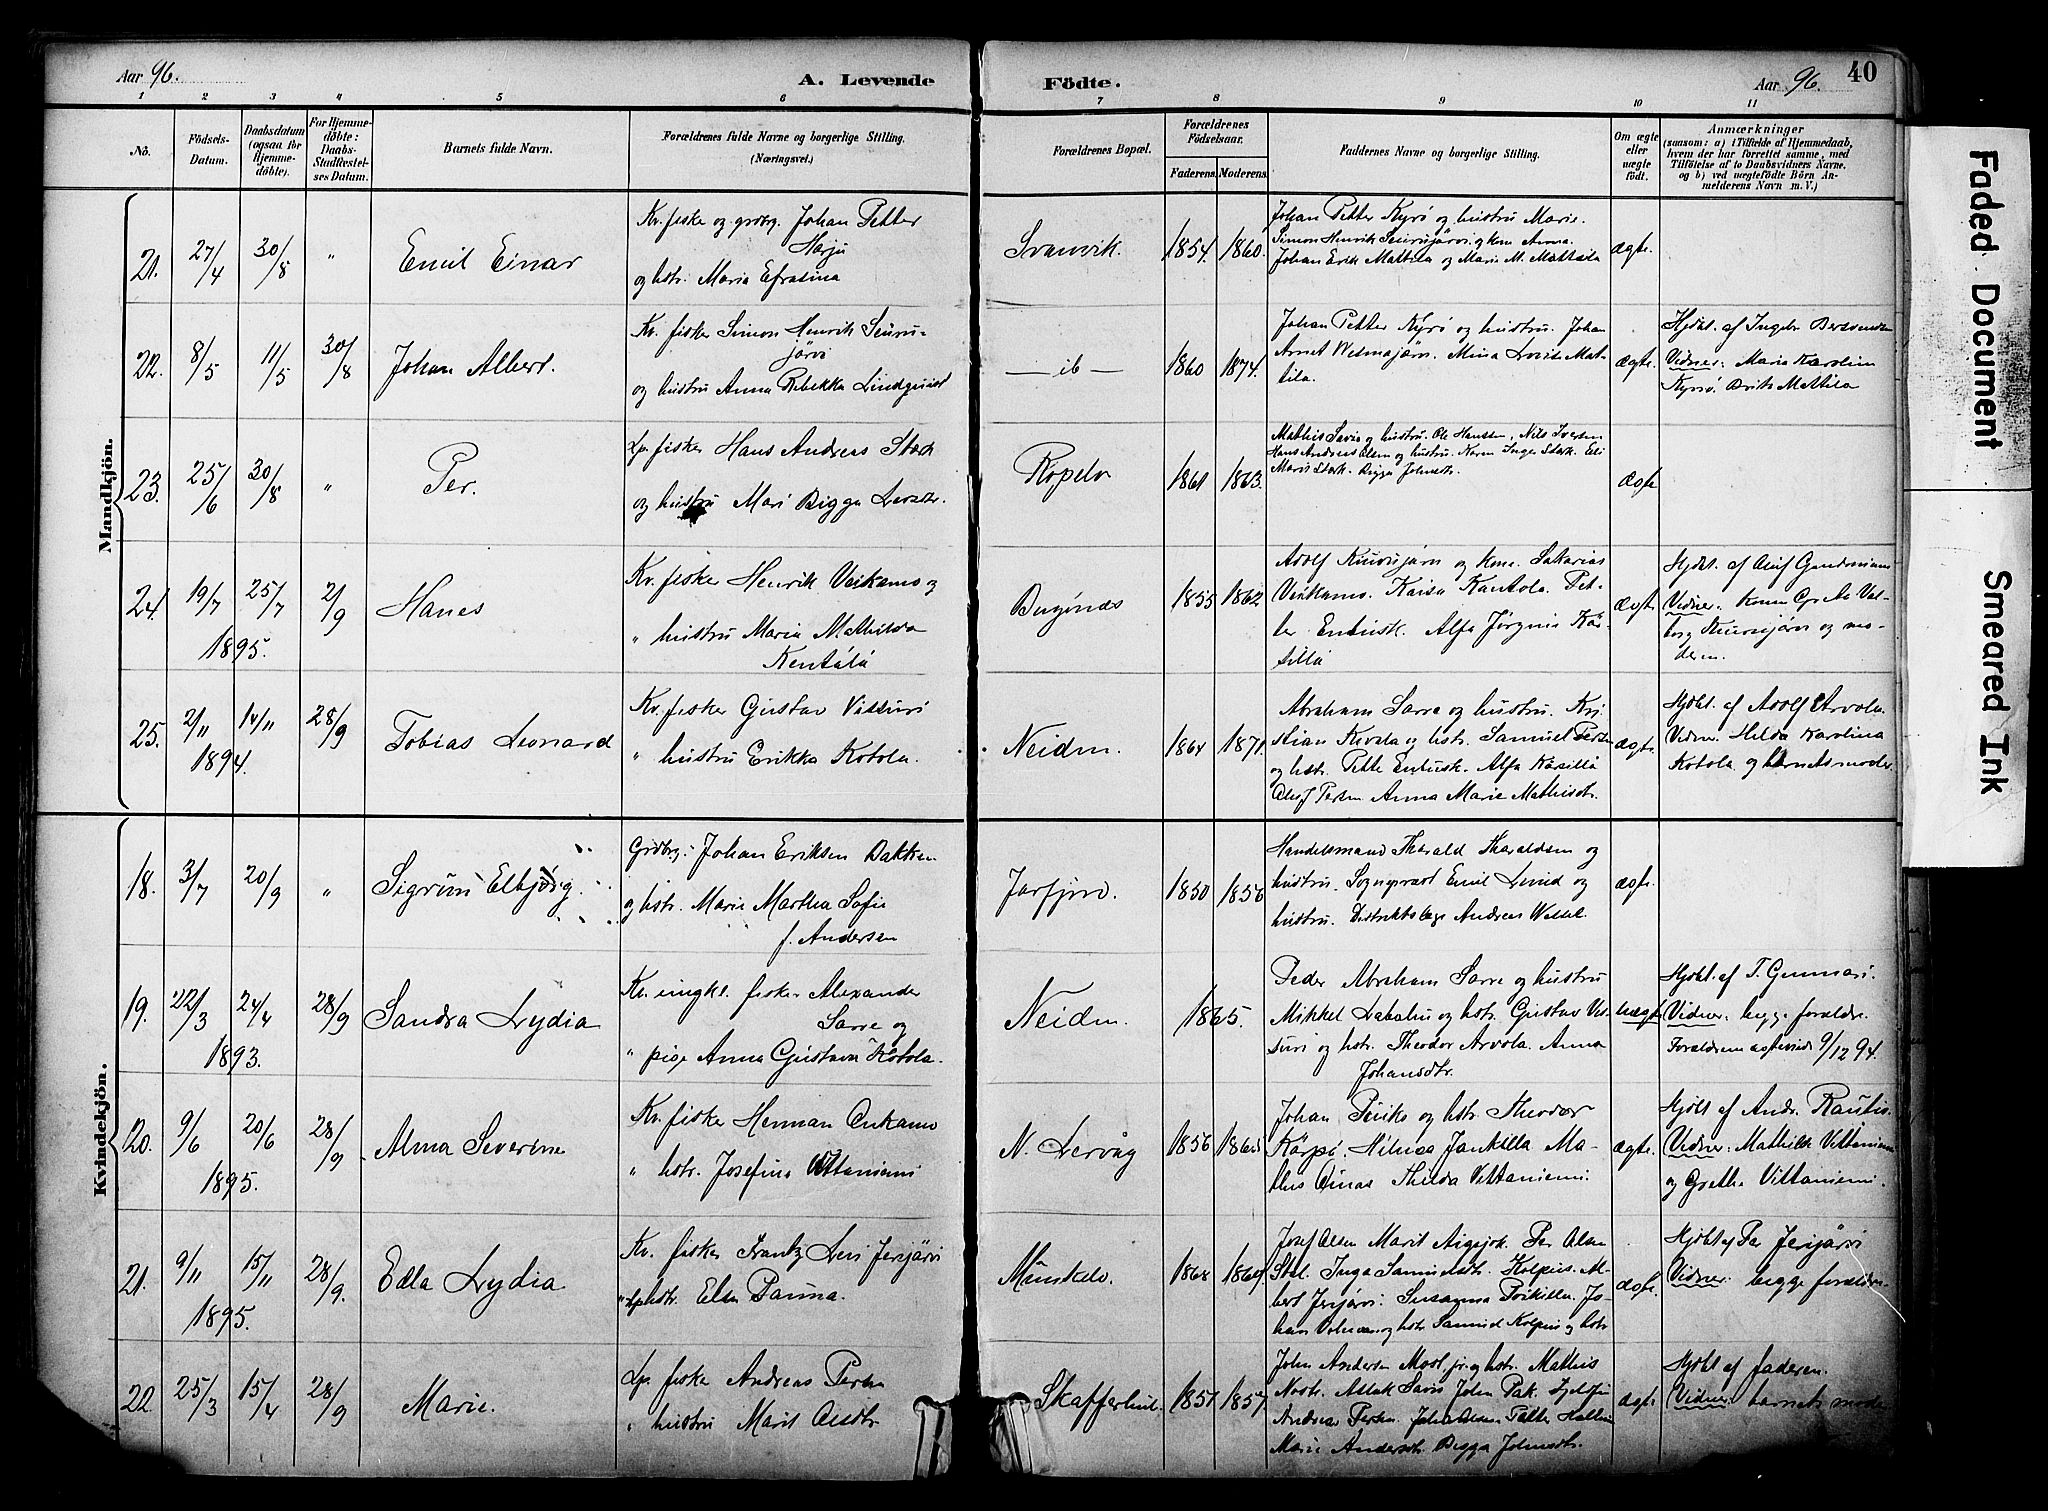 Aar 96.
A. Levende Födte.
Aar 96.
40
1 2 3 4 5 6 7 8 9 10 11
No.
Födsels-
Datum.
Daabsdatum
(ogsaa for
Hjemme-
döbte).
For Hjemme-
döbte:
Daabs-
Stadfæstel-
ses Datum.
Barnets fulde Navn.
Forældrenes fulde Navne og borgerlige Stilling.
(Næringsvei.)
Forældrenes Bopæl.
Forældrenes
Födselsaar.
Faderens. Moderens.
Faddernes Navne og borgerlige Stilling.
Om ægte
eller
uægte
födt.
Anmærkninger
(saasom: a) i Tilfælde af Hjemmedaab,
hvem der har forrettet samme, med
Tilföielse af to Daabsvidners Navne.
og b) ved uægtefödte Börn An-
melderens Navn m. V.)
Mandkjön.
21. 27/4 30/8 " Emil Einar
Kv. fisker og grdbrg. Johan Petter
Harju
og hstr. Maria Efrasina
Svanvik. 1854. 1860.
Johan Petter Kyrö og hustru Marie.
Simon Henrik Seurujärvi og kone Anna.
Johan Erik Mattila og Marie M. Mattila
ægte.
22. 8/5 11/5 30/8 Johan Albert.
Kv. fisker Simon Henrik Seuru-
järvi
og hustru Anna Rebekka Lindquist
— ib — 1860 1874.
Johan Petter Kyrö og hustru. Johan
Arnet Mina Lovise Mat-
tila.
ægte.
Hjdbt. af Ingebr.
Vidner: Maria Karolina
Kyrö. Brita Mattila
23. 25/6 30/8 " Per.
Lp. fisker Hans Andreas Stærk
og hustru Mari Bigga Larsdtr.
Kopelv 1861 1863.
Mathis Savio og hustru. Ole Hanssen. Nils Iversen
Hans Andreas Olsen og hustru. Karen Inger Stærk. Eli
Maris Stærk. Bigga Johnsdtr.
ægte
24. 19/7 25/7 2/9 Hanes
1895.
Kv. fisker Henrik Veikamo og
" hustru Maria Mathilda
Kentälä
Bugönæs 1855 1862
Adolf og kone. Sakarias
Kaisa Kantola. Pet-
ter Alfa Jörgine Kär-
sillä
ægte
Hjdbt. af Oluf
Vidner: Konen Val-
borg og mo-
deren.
25. 2/11 14/11 28/9 Tobias Leonard
1894.
Kv. fisker Gustav Vissuri
" hustru Erikka Kotola.
Neiden. 1864 1871.
Abraham Sarre og hustru. Kri-
stian Kivela og hstr. Samuel Persen
og hstr. Pette Alfa Kärsillä
Oluf Persen Anna Marie Mathisdtr.
ægte.
Hjdbt. af Adolf Arvola.
Vidner. Hilda Karolina
Kotola. og barnets moder
Kvindekjön.
18. 3/7 20/9 " Sigrun Elbjörg.
Grdbrg. Johan Eriksen Bakken
og hstr. Marie Martha Sofie
f. Andersen
Jarfjord. 1850 1856
Handelsmand Tharald Tharaldsen og
hustru. Sogneprest Emil Lund og
hustru. Distriktslæge Andreas Wessel.
ægte.
19. 22/3 24/4 28/9 Sandra Lydia
1893.
Kv. ungkl. fisker Alexander
Sarre og
" pige Anna Gustava Kotola.
Neiden. 1865.
Peder Abraham Sarre og hustru
Mikkel Labahu og hstr. Gustav Vis-
suri og hstr. Theodor Arvola. Anna
Johansdtr.
uægte
Hjdbt. af T. Gunnari.
Vidner: begge forældre.
Forældrene ægteviede 9/12 94.
20. 9/6 20/6 28/9 Alma Severine
1895.
Kv. fisker Herman Onkamo
" hstr. Josefina Vittaniemi
N. Lervåg 1856 1865
Johan og hstr. Theodor
Hilma Jankilla Ma-
this Thilda Vittaniemi.
ægte.
Hjdbt af Andr. Rautio.
Vidner: Mathilde Vittaniemi
og Grethe Vittaniemi.
21. 9/11 15/11 28/9. Edla Lydia
1895.
Kv. fisker Frantz Jerijärvi
" Lp. hstr. Elen
Munkelv. 1868 1869
Josef Olsen Marit Aigejok. Per Olsen
Inga Samuelsdtr. Kolpus. Al-
bert Jerijärvi. Susanna Jo-
han og hstr Samuel Kolpus og hstr
ægte.
Hjdbt af Per Jerijärvi
Vidner: begge forældre
22 25/3 15/4 28/9 Marie.
Lp. fisker Andreas Persen
" hustru Marit Olsdtr.
Skafferhul. 1851 1857
John Andersen jr. og hstr. Mathis
Aslak Savio John
Andreas Persen. Petter
Marie Andersdtr. Bigga Johnsdtr.
ægte
Hjdbt af faderen.
Vidner: barnets mode
Faded Document
Smeared Ink